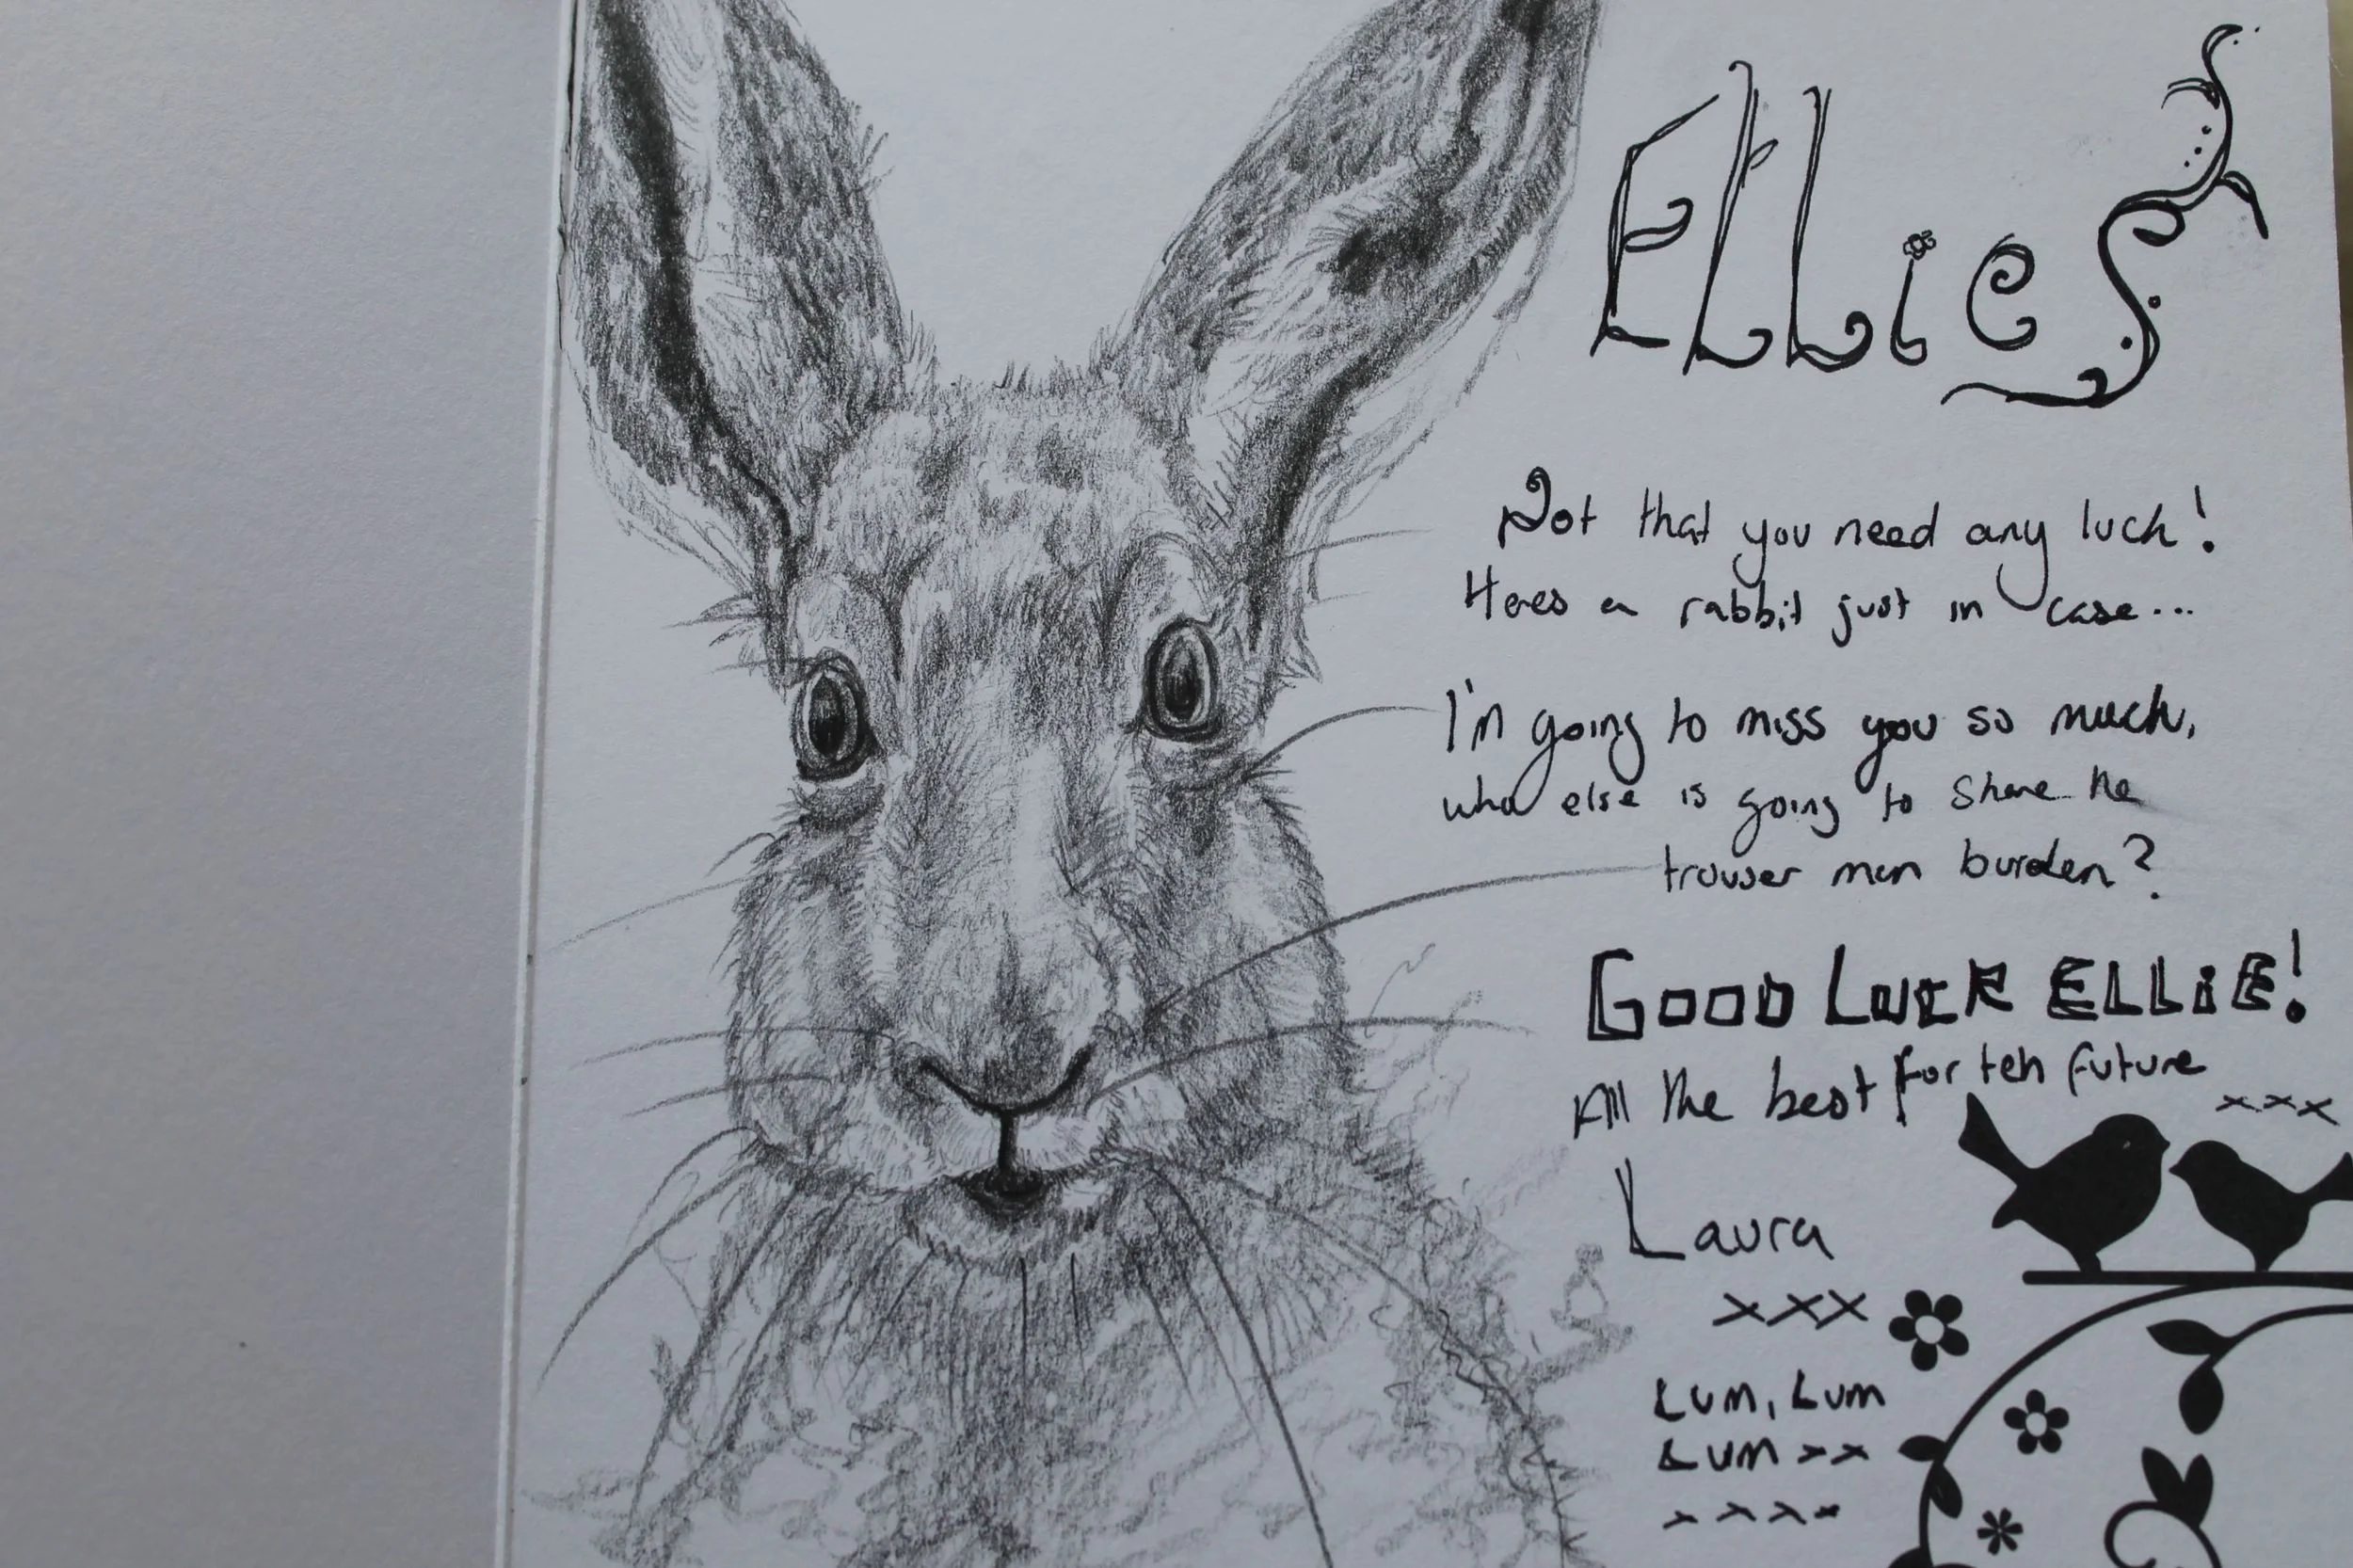 Ellies
Not that you need any luck!
Heres a rabbit just in case...
I'm going to miss you so much,
who else is going to share the
trouser man burden?
GOOD LUCK ELLiE!
All the best for teh future
xxx
Laura
xxx
Lum, Lum
Lum xx
xxxx